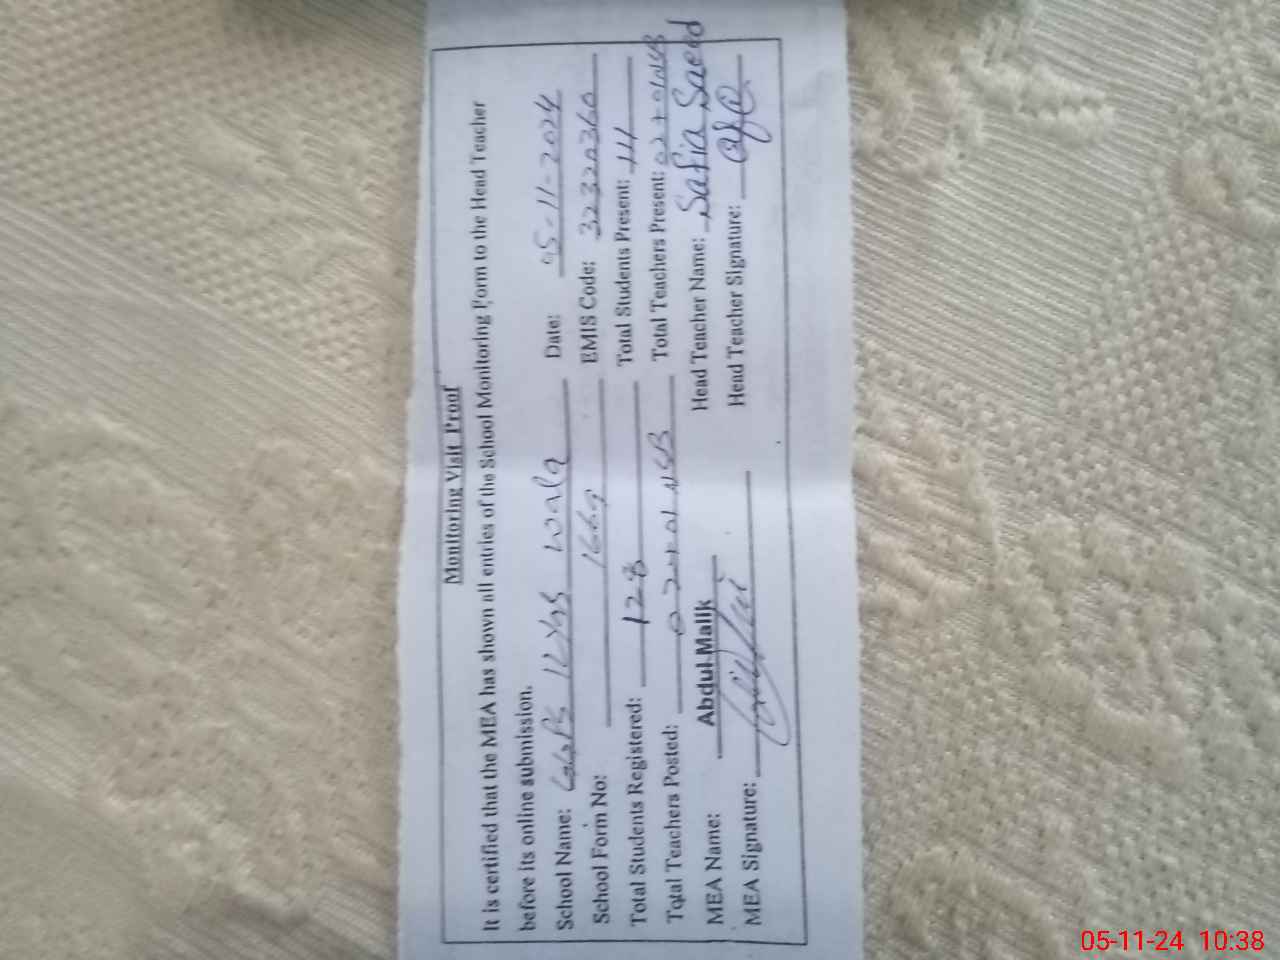 Monitoring Visit Proof
It is certified that the MEA has shown all entries of the School Monitoring Form to the Head Teacher
before its online submission.
School Name: GGPS 12 Yas wala Date: 05-11-2024
School Form No: 1669 EMIS Code: 32320360
Total Students Registered: 128 Total Students Present: 111
Total Teachers Posted: 02+01 NSB Total Teachers Present: 02+01 NSB
MEA Name: Abdul Malik Head Teacher Name: Safia Saeed
MEA Signature: Head Teacher Signature:
05-11-24 10:38